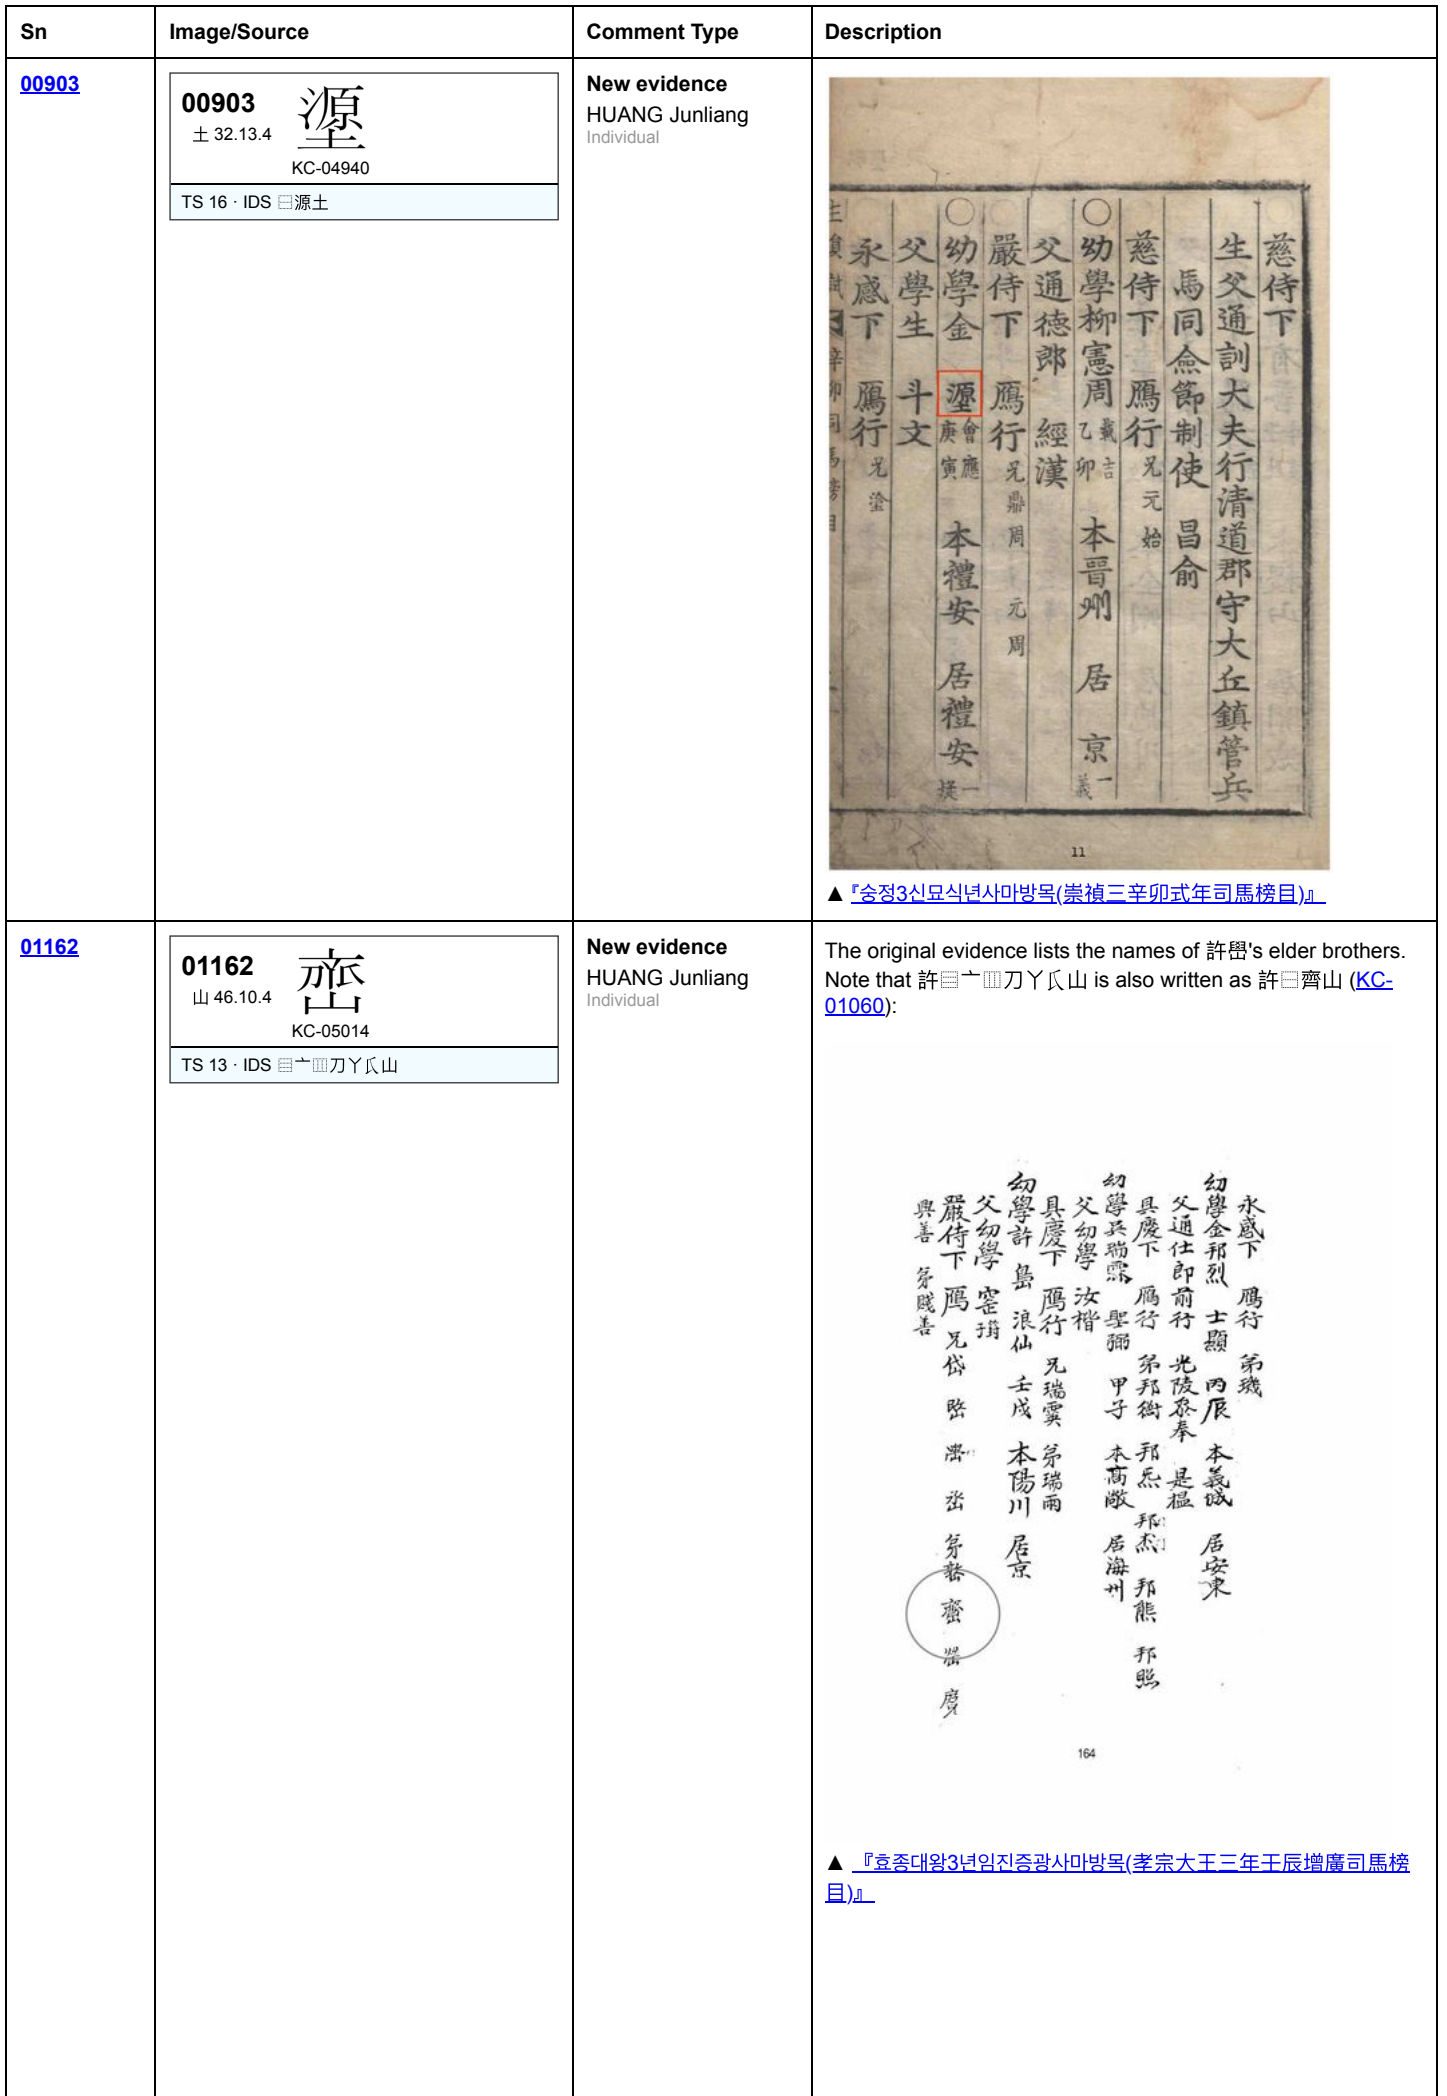 Sn Image/Source Comment Type Description
00903
00903
土 32.13.4
KC-04940
TS 16 · IDS ⿱源土
New evidence
HUANG Junliang
Individual
慈侍下
生父通訓大夫行清道郡守大丘鎮管兵
馬同僉節制使 昌俞
慈侍下 鴈行 兄元始
幼學柳憲周 載吉 乙卯 本晋州 居京 一義
父通德郎 經漢
嚴侍下 鴈行 兄鼎周 元周
幼學金 會應 庚寅 本禮安 居禮安
父學生 斗文
永感下 鴈行 兄塗
11
▲ 『숭정3신묘식년사마방목(崇禎三辛卯式年司馬榜目)』
01162
01162
山 46.10.4
KC-05014
TS 13 · IDS ⿳亠⿲刀丫𠂆山
New evidence
HUANG Junliang
Individual
The original evidence lists the names of 許嶨's elder brothers.
Note that 許⿳亠⿲刀丫𠂆山 is also written as 許⿱齊山 (KC-
01060):
永感下 鴈行 弟璣
幼學金邦烈 士顯 丙辰 本義城 居安東
父通仕郎前行 光陵參奉 是榲
具慶下 鴈行 弟邦衡 邦炁 邦杰 邦熊 邦照
幼學吳瑞霖 聖弼 甲子 本高敞 居海州
父幼學 汝楷
具慶下 鴈行 兄瑞霙 弟瑞雨
幼學許 浪仙 壬戌 本陽川 居京
父幼學
嚴侍下 鴈 兄岱
興善 弟賤善
164
▲ 『효종대왕3년임진증광사마방목(孝宗大王三年壬辰增廣司馬榜
目)』